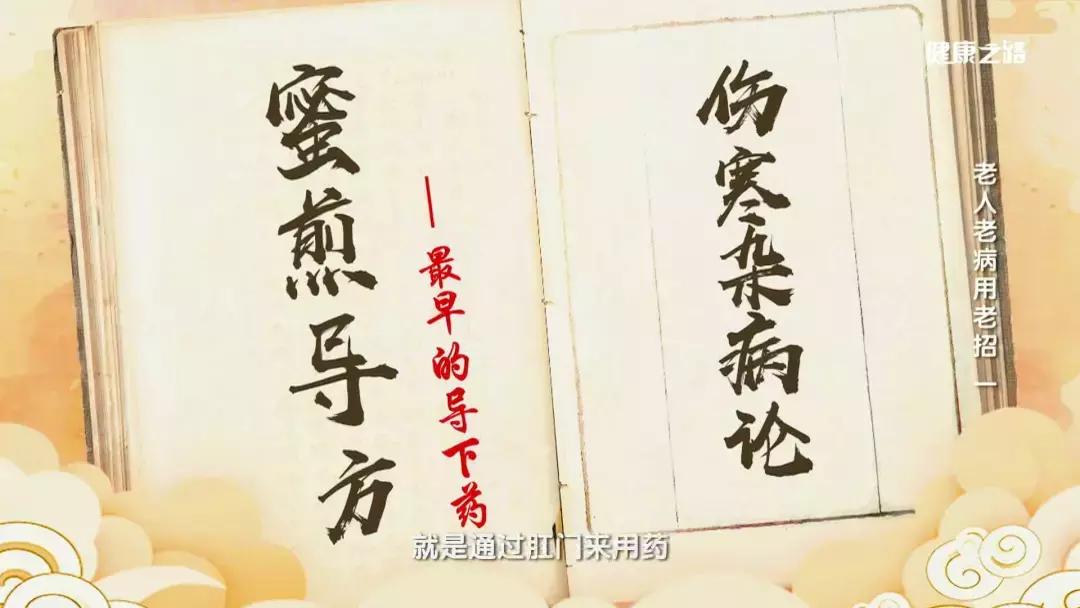 健康之路
老人老病用老招 一
伤寒杂病论
蜜煎导方
—最早的导下药
就是通过肛门来用药